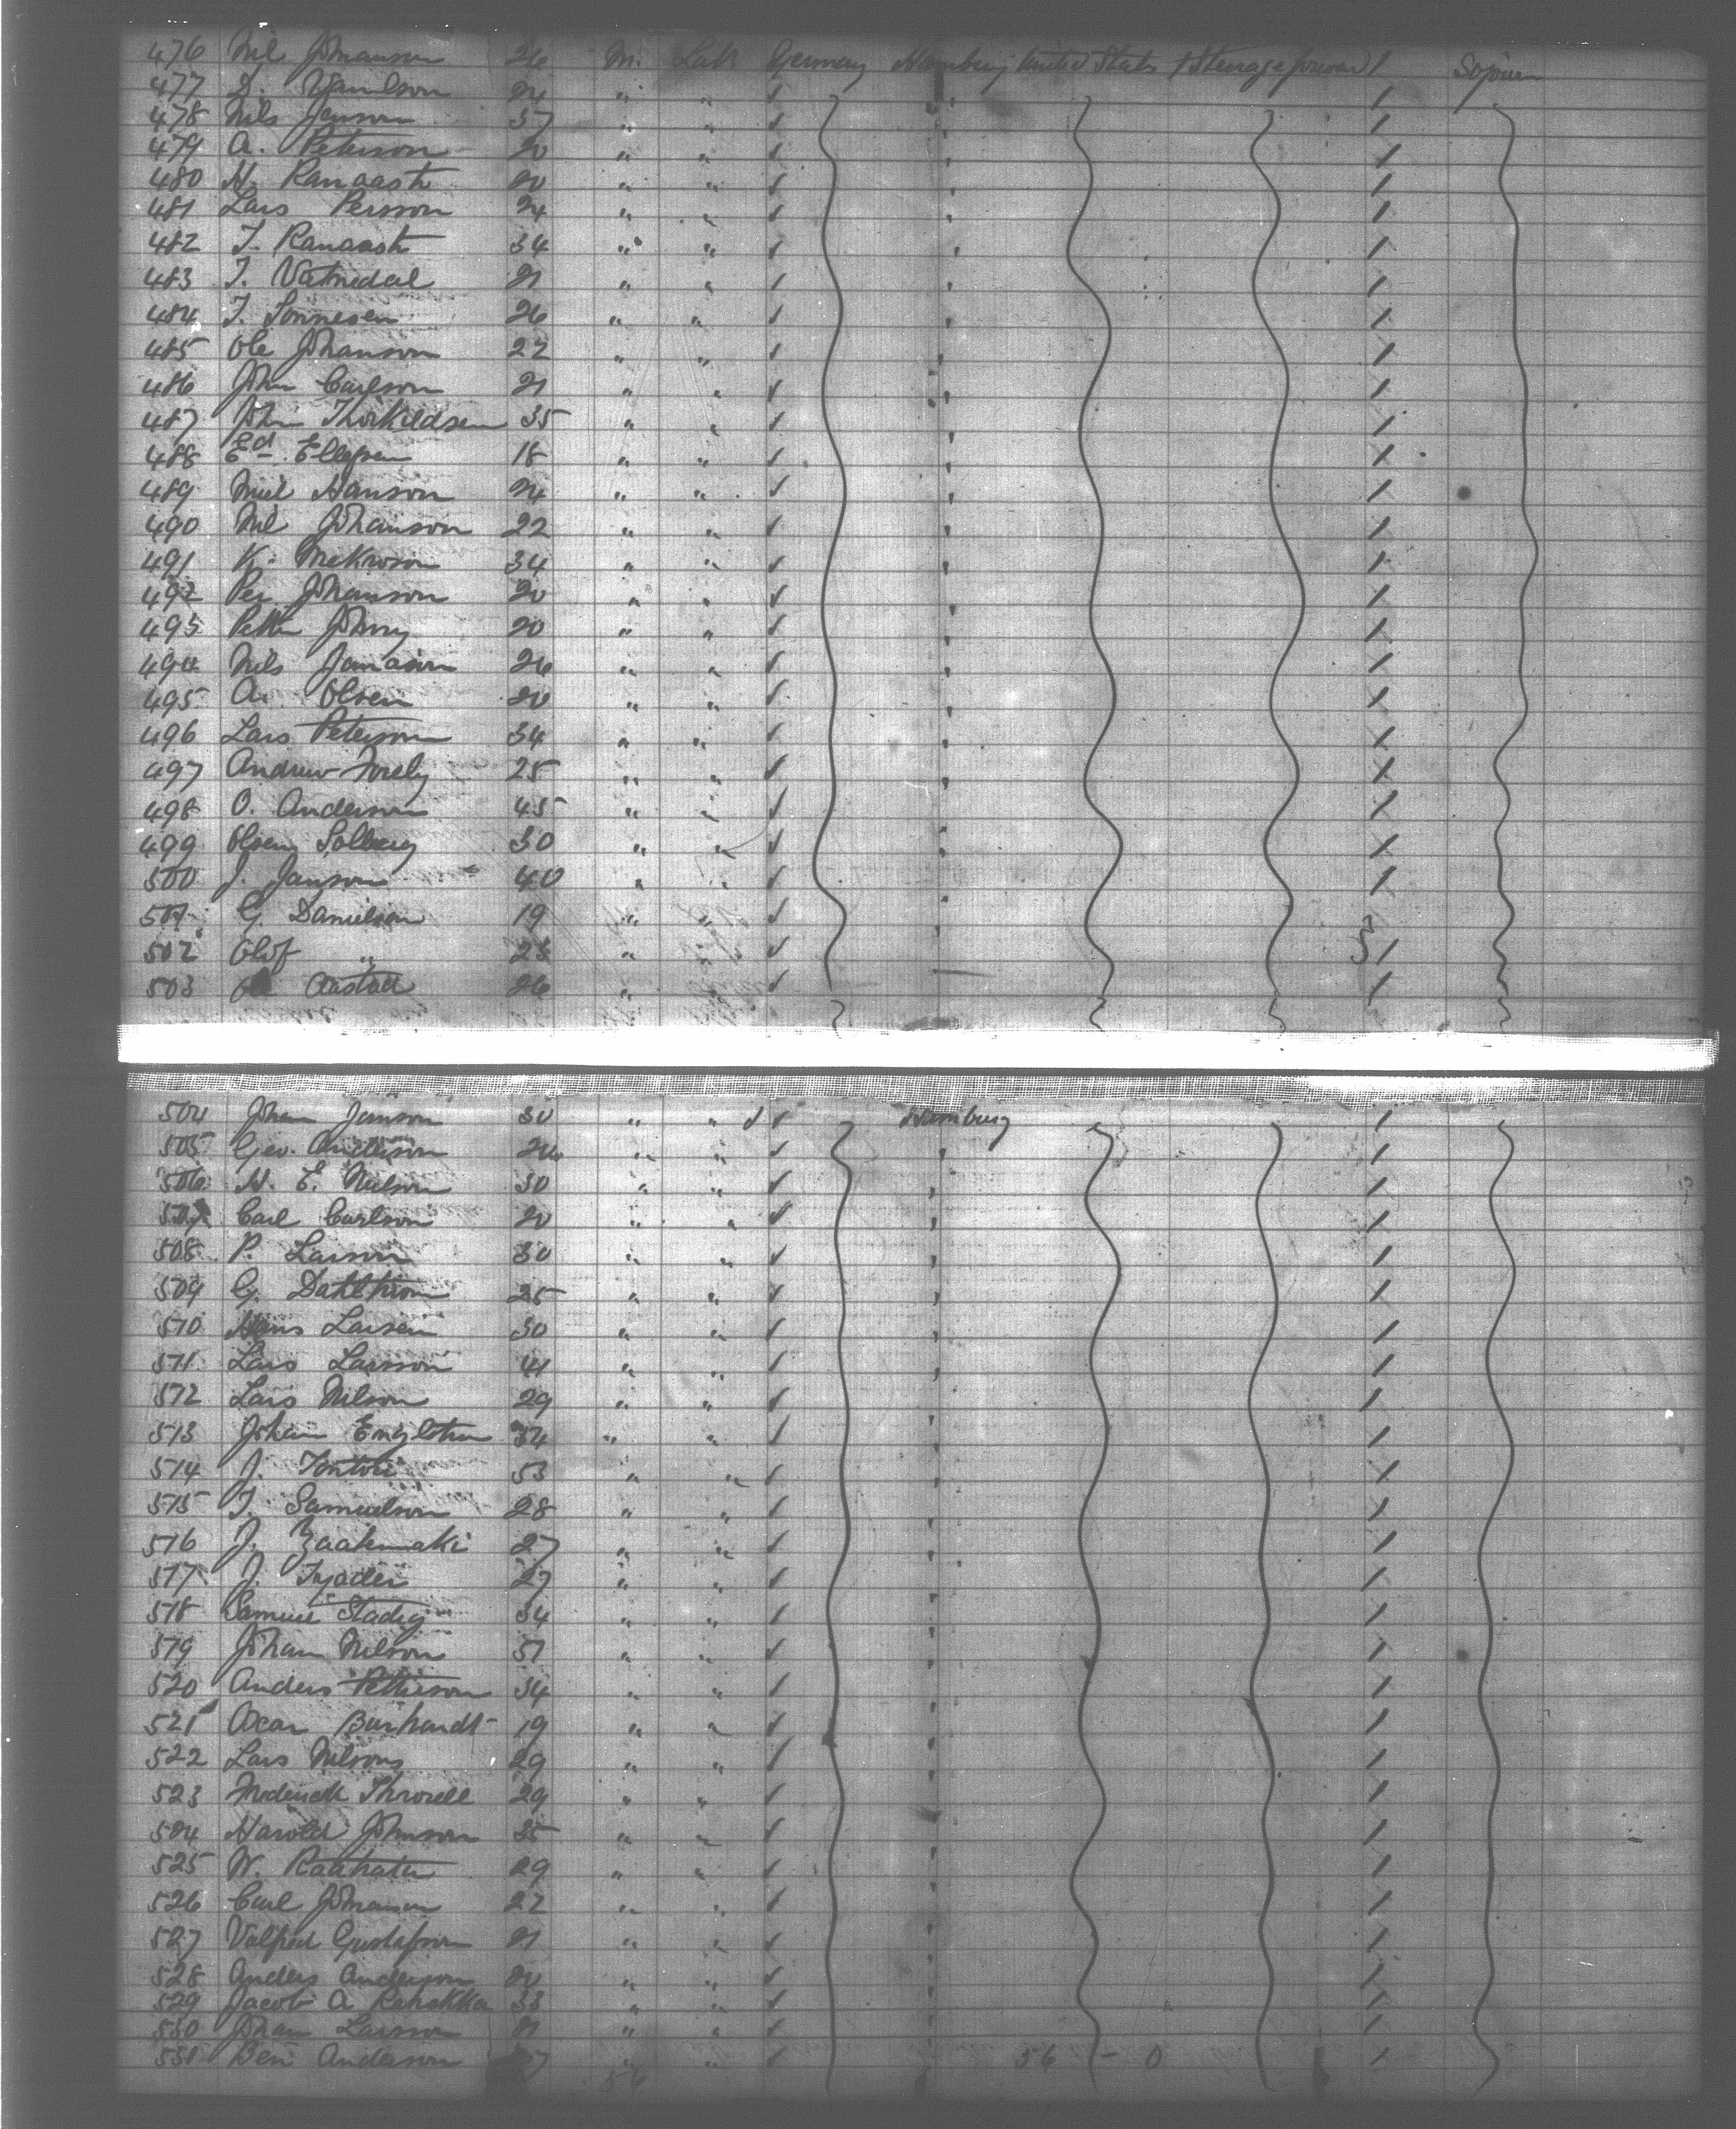 476 Nil Johanson 26 M. Lab Germany Hamburg United States 1 Steerage forward / Sojourn
477 D. 24 " " ✓ " /
478 Nils Janson 37 " " ✓ " /
479 A. Peterson 20 " " ✓ " /
480 H. Ranaast 20 " " ✓ " /
481 Lars Persson 24 " " ✓ " /
482 T. Ranaast 34 " " ✓ " /
483 T. Vatnedal 21 " " ✓ " /
484 T. Tonnesen 26 " " ✓ " /
485 Ole Johanson 22 " " ✓ " /
486 John Carlson 21 " " ✓ " /
487 John Thorkildsen 35 " " ✓ " /
488 Ed. Ellefsen 18 " " ✓ " /
489 Hanson 24 " " ✓ " /
490 Nil Johanson 22 " " ✓ " /
491 K. 34 " " ✓ " /
492 Per Johanson 20 " " ✓ " /
493 20 " " ✓ " /
494 Nils 26 " " ✓ " /
495 A. Olsen 20 " " ✓ " /
496 Lars Peterson 34 " " ✓ " /
497 Andrew 25 " " ✓ " /
498 O. Anderson 45 " " ✓ " /
499 Solberg 30 " " ✓ " /
500 J. Janson 40 " " ✓ " /
501 G. Danielson 19 " " ✓ " /
502 Olof " 23 " " ✓ " /
503 Ole Aastad 26 " " ✓ /
504 Johan Janson 30 " " ✓ ✓ Hamburg /
505 Geo. Anderson " " ✓ " /
506 H. E. Nielson 30 " " ✓ " /
507 Carl Carlson 20 " " ✓ " /
508 P. Larson 30 " " ✓ " /
509 G. 25 " " ✓ " /
510 Hans Larsen 30 " " ✓ " /
511 Lars Larsson 41 " " ✓ " /
512 Lars Nilson 29 " " ✓ " /
513 Johan 34 " " ✓ " /
514 J. 53 " " ✓ " /
515 T. Samuelson 28 " " ✓ " /
516 J. 27 " " ✓ " /
517 J. 27 " " ✓ " /
518 Samuel Stadig 34 " " ✓ " /
519 Johan Nilson 51 " " ✓ " /
520 Anders Petterson 34 " " ✓ " /
521 Oscar Burhardt 19 " " ✓ " /
522 Lars Nilsons 29 " " ✓ " /
523 Frederick 29 " " ✓ " /
524 Harold Johnson 25 " " ✓ " /
525 W. 29 " " ✓ " /
526 Carl Johanson 22 " " ✓ " /
527 Valfred Gustafson 21 " " ✓ " /
528 Anders Anderson 20 " " ✓ " /
529 Jacob A 33 " " ✓ " /
530 Johan Larsson 21 " " ✓ " /
531 Ben Anderson " " ✓ 56 - 0 /
56